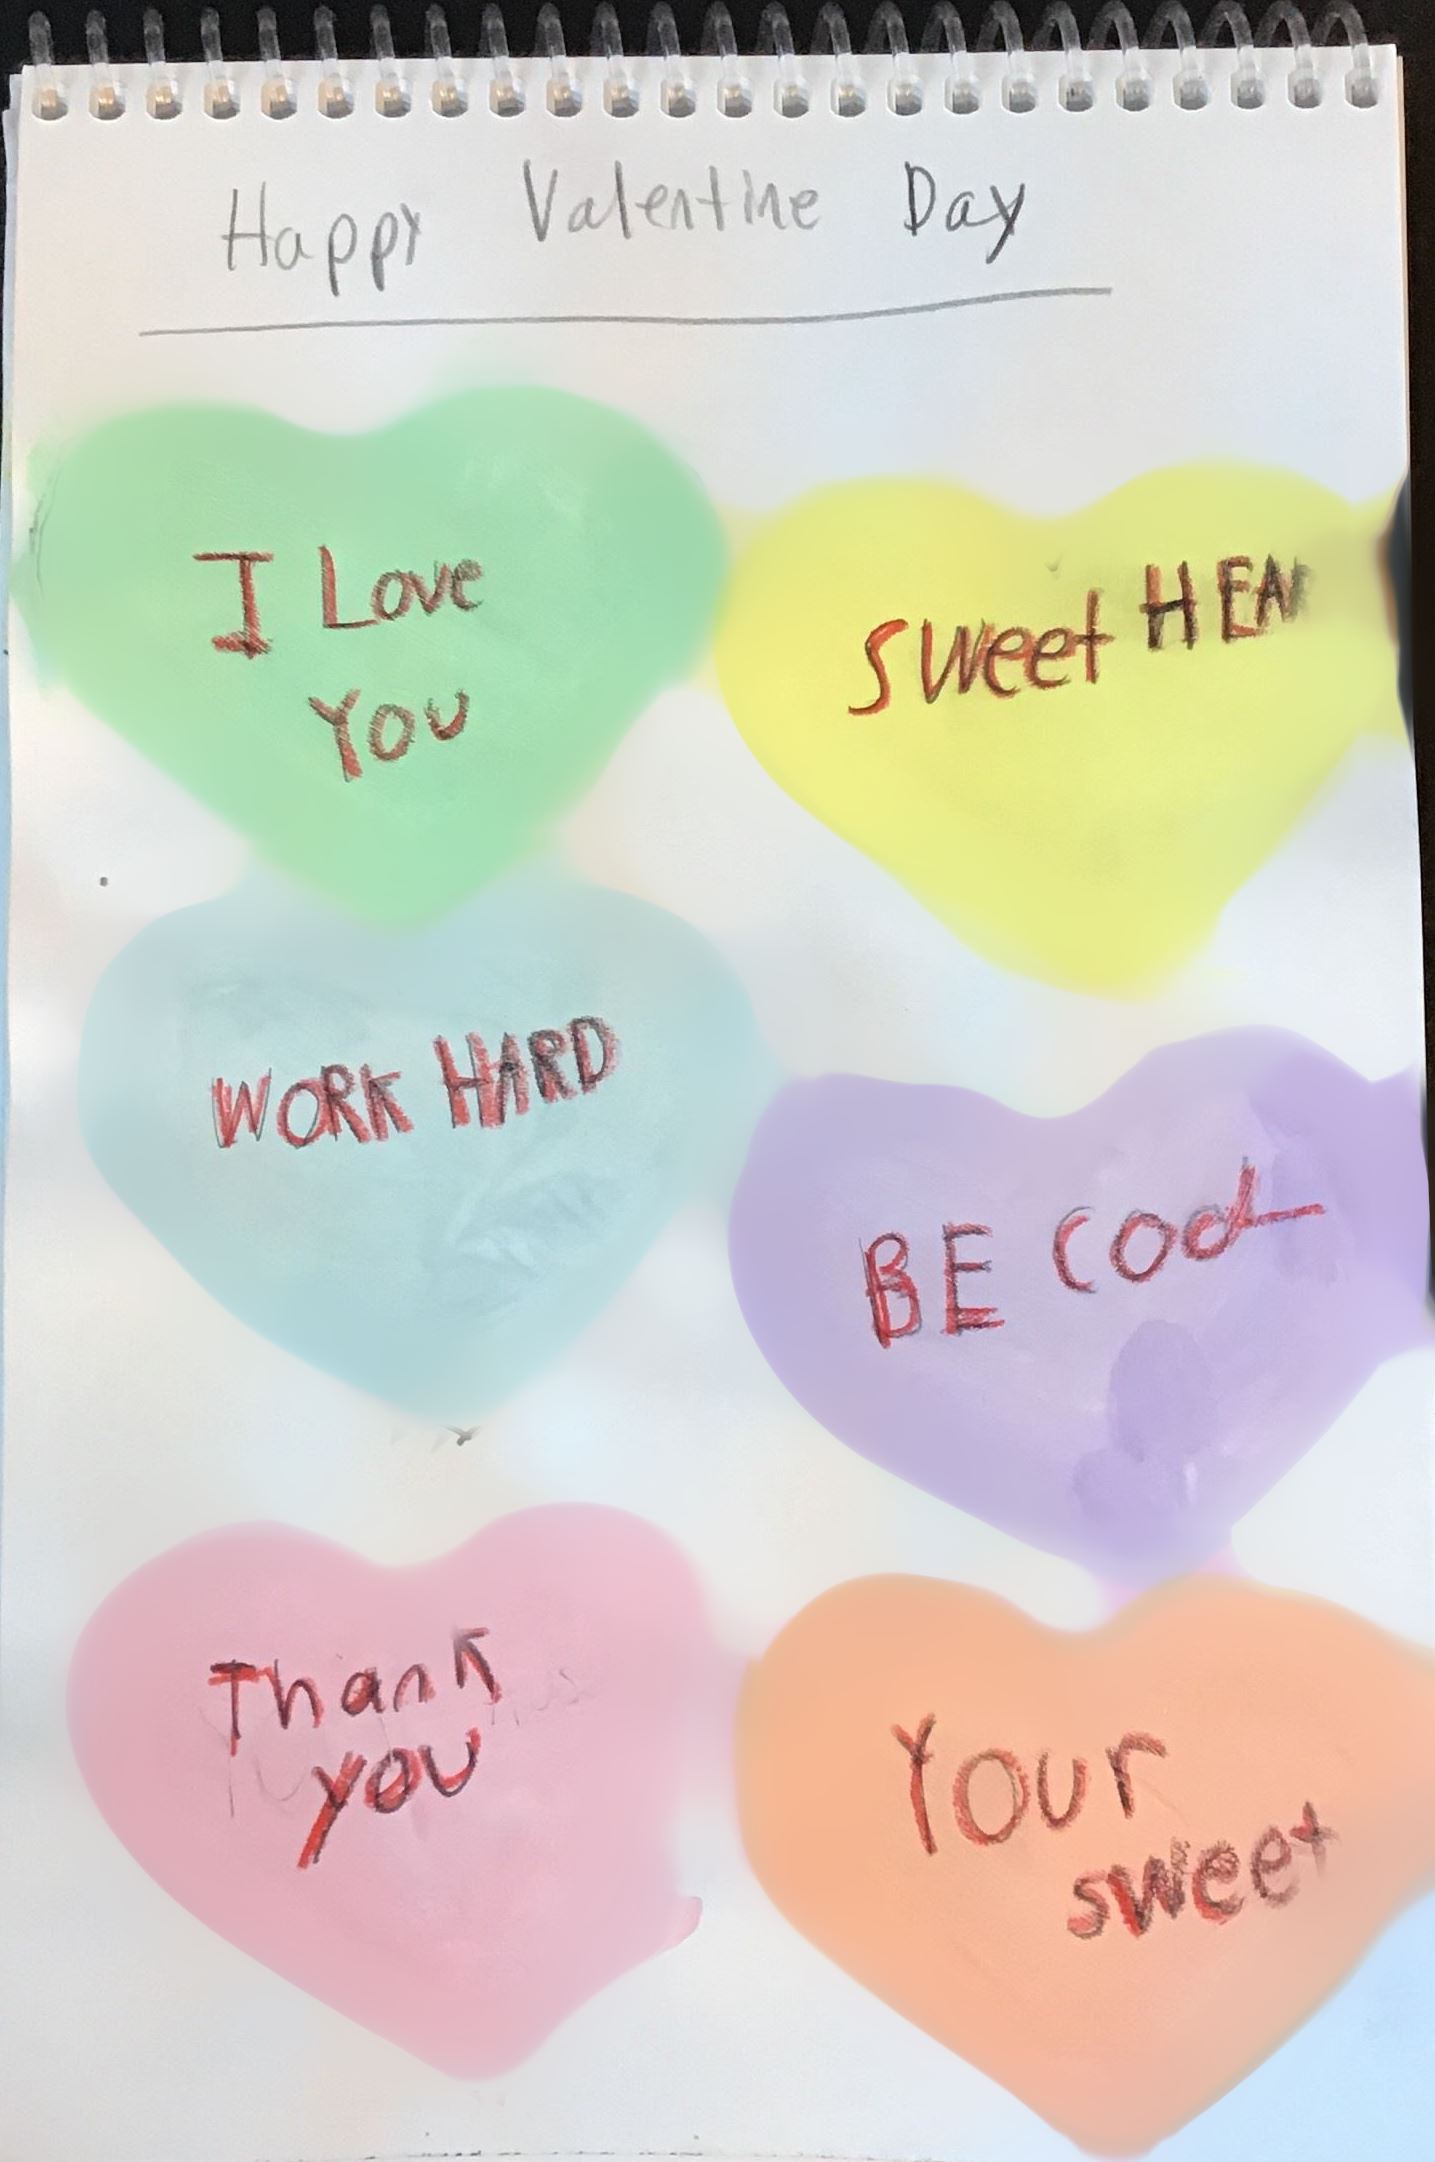 Happy Valentine Day
I Love
You
Sweet HEA
WORK HARD
BE COOL
Thank
you
Your
sweet